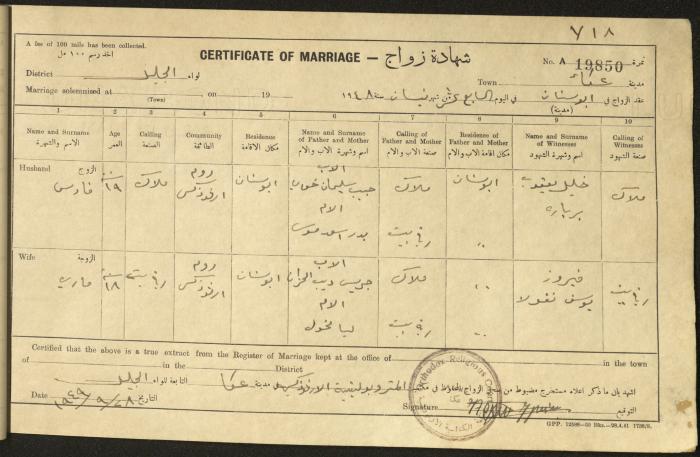 ٧١٨
A fee of 100 mils has been collected.
اخذ رسم ١٠٠ مل
CERTIFICATE OF MARRIAGE — شهادة زواج
No. A 19850 نمرة
District الجليل لواء
Town عكا مدينة
Marriage solemnised at on 19
(Town)
عقد الزواج في ابوسنان في اليوم السابع عشر شهر نيسان سنة ١٩٤٨
(مدينة)
1 2 3 4 5 6 7 8 9 10
Name and Surname Age Calling Community Residence Name and Surname of Father and Mother Calling of Father and Mother Residence of Father and Mother Name and Surname of Witnesses Calling of Witnesses
الاسم والشهرة العمر الصنعة الطائفة مكان الاقامة اسم وشهرة الاب والام صنعة الاب والام مكان اقامة الاب والام اسم وشهرة الشهود صنعة الشهود
Husband الزوج
فارس
١٩ سنة
ملاك
روم ارثوذكس
ابوسنان
الاب
حبيب سليمان
الام
بدر اسعد موسى
ملاك
ربة بيت
ابوسنان
〃
خليل يعقوب
ملاك
Wife الزوجة
ماري
١٨ سنة
ربة بيت
روم ارثوذكس
ابوسنان
الاب
جريس ديب
الام
ملاك
ربة بيت
〃
〃
فيروز يوسف نقولا
ربة بيت
Certified that the above is a true extract from the Register of Marriage kept at the office of in the town
of in the District
اشهد بان ما ذكر اعلاه مستخرج مضبوط من سجل الزواج المحفوظ في مكتب المتروبوليتية الارثوذكسية مدينة عكا التابعة للواء الجليل
Date ٢٨/٩/١٩٤٩ التاريخ
Signature التوقيع
Orthodox Religious
G.P.P. 12588—60 Bks.—28.4.41 1736/S.